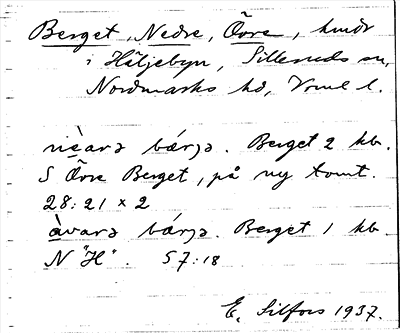 Berget, Nedre, Övre, hmdr
i Häljebyn, Silleruds sn,
Nordmarks hd, Vrml l.
nèarə bárjə. Berget 2 kb.
S Övre Berget, på ny tomt.
28:21 x 2
àvarə bárjə. Berget 1 kb
N "H". 57:18
E. Silfors 1937.